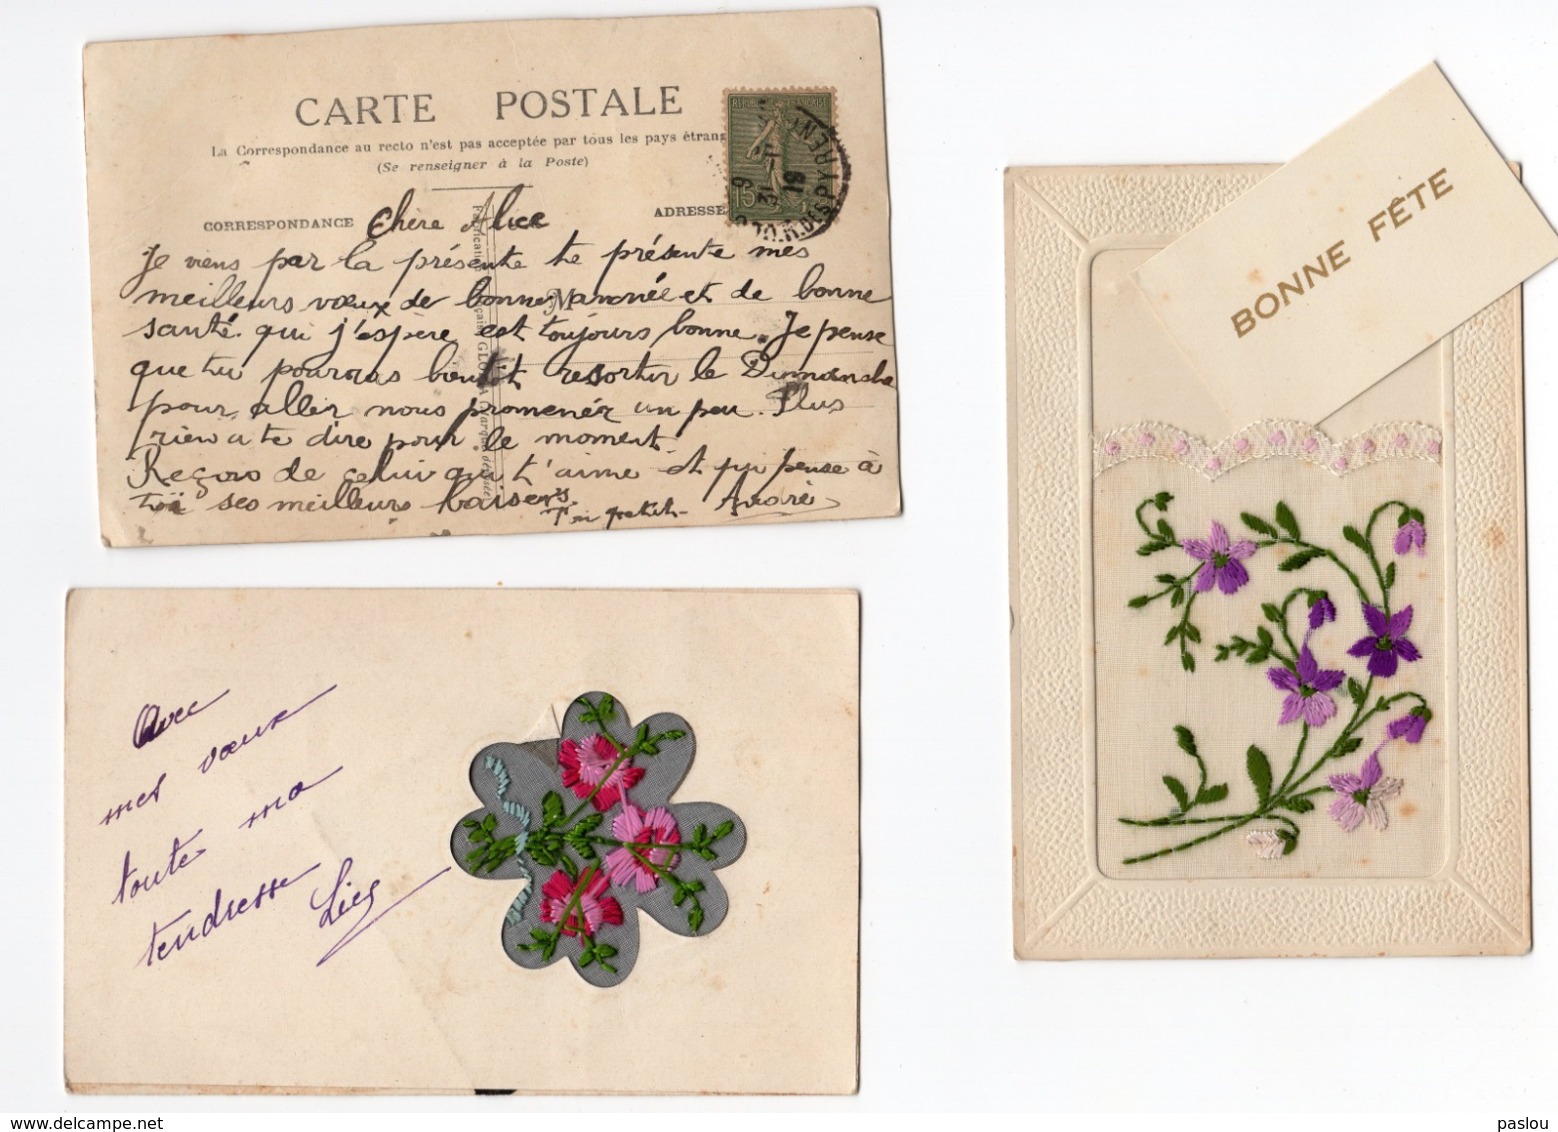 CARTE POSTALE
La Correspondance au recto n'est pas acceptée par tous les pays étrang
(Se renseigner à la Poste)
CORRESPONDANCE
ADRESSE
REPUBLIQUE FRANÇAISE
15
Chère Alice
Je viens par la présente te présente mes
meilleurs vœux de bonne Année et de bonne
santé. qui j'espère est toujours bonne. Je pense
que tu pourras bientôt ressortir le Dimanche
pour aller nous promener un peu. Plus
rien a te dire pour le moment
Reçois de celui qui t'aime et qui pense à
toi ses meilleurs baisers.
André
BONNE FÊTE
Avec
mes vœux
toute ma
tendresse
paslou